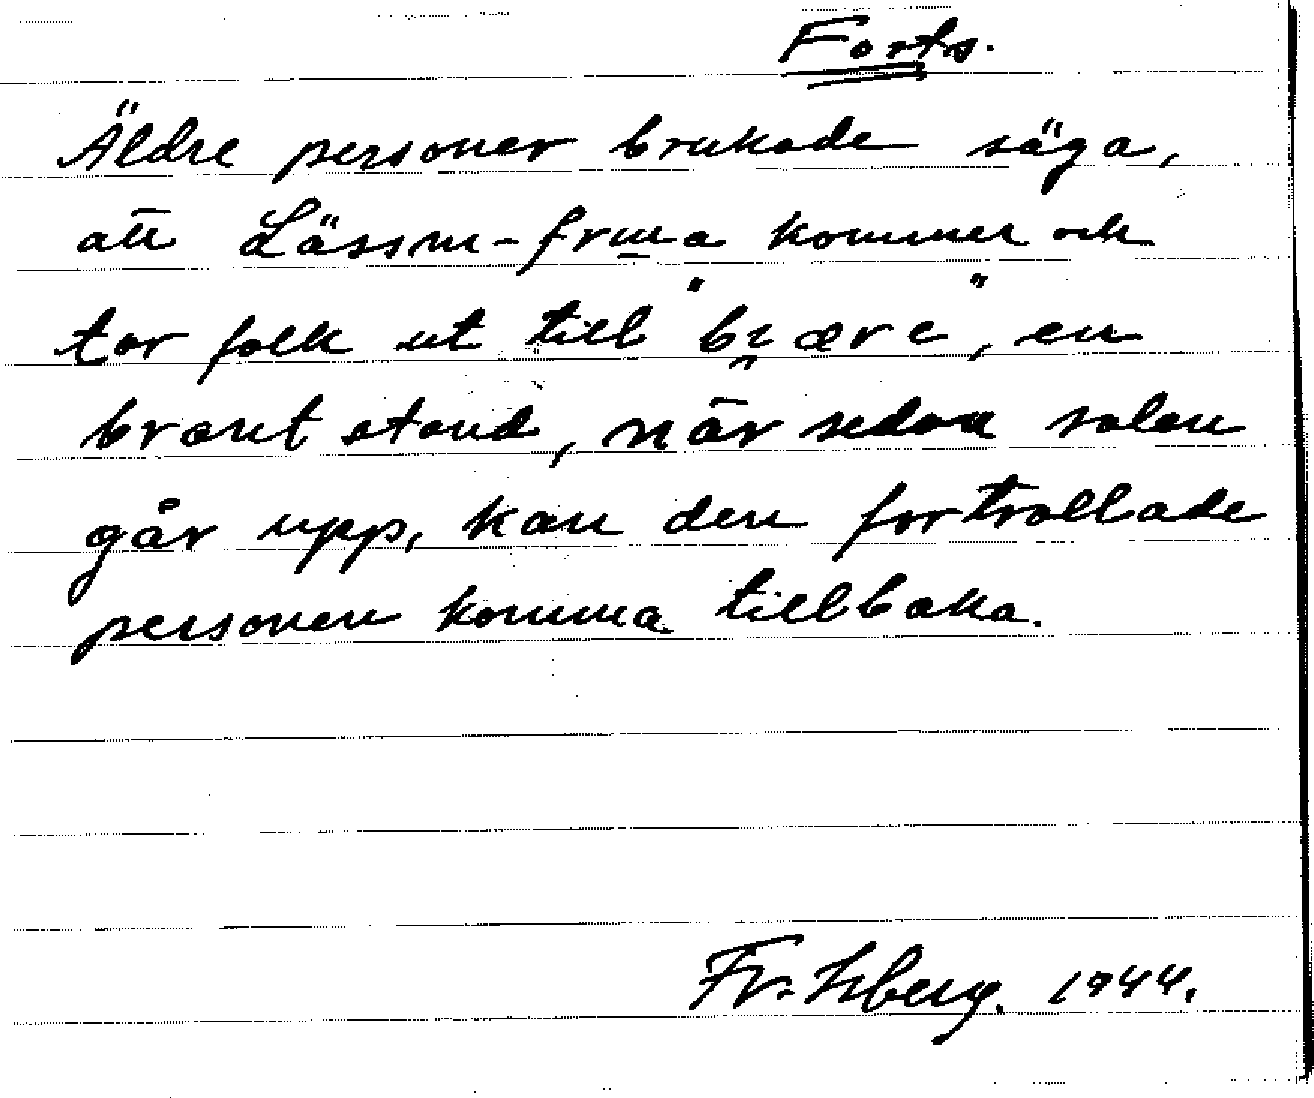 Forts.
Äldre personer brukade säga,
att Lässm-fruua kommer och
tar folk ut till "bzære", en
brant stand, när sedan solen
går upp, kan den fortrollade
personen komma tillbaka.
Fr. 1944.